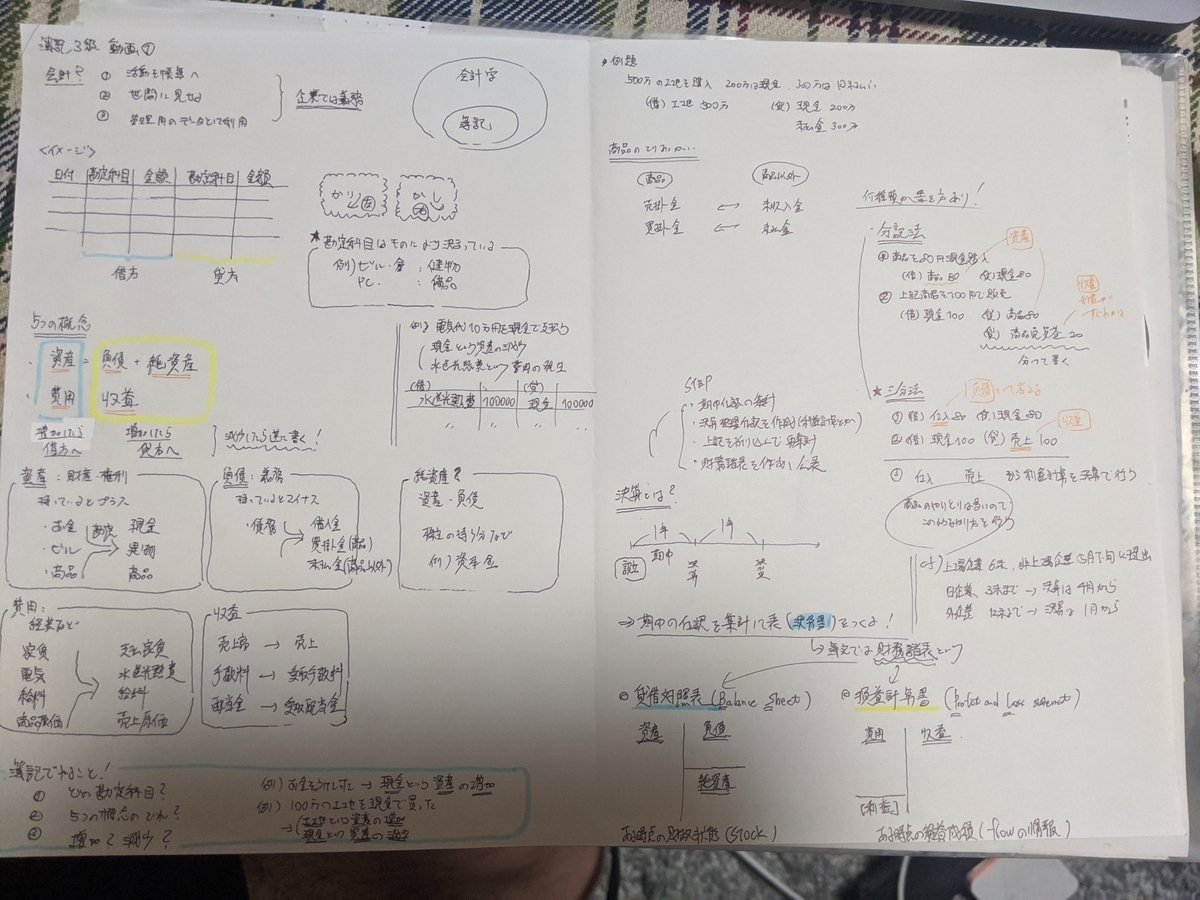 簿記3級 動画①
会計?
① 活動を帳簿へ
② 世間に見せる
③ 管理用のデータとして利用
企業では義務
会計学
簿記
<イメージ>
日付 勘定科目 金額 勘定科目 金額
借方 貸方
かり
かし
★勘定科目はものにより決まっている
例) ビル・倉 : 建物
PC : 備品
5つの概念
・資産 = 負債 + 純資産
・費用 収益
増加したら 借方へ
増加したら 貸方へ
減少したら逆に書く!
例) 電気代10万円を現金で支払う
現金という資産の減少
水道光熱費という費用の発生
(借) (貸)
水道光熱費 100000 現金 100000
〃 〃 〃 〃
資産 : 財産・権利
持っているとプラス
・お金 現金
・ビル 勘定 建物
・商品 商品
負債 : 義務
持っているとマイナス
・借金 借入金
買掛金(商品)
未払金(商品以外)
純資産?
資産 - 負債
株主の持ち分など
例) 資本金
費用 :
経費など
家賃 支払家賃
電気 水道光熱費
給料 給料
商品原価 売上原価
収益
売上高 → 売上
手数料 → 受取手数料
配当金 → 受取配当金
簿記でやること!
① どの勘定科目?
② 5つの概念のどれ?
③ 増加? 減少?
例) お金をうけとった → 現金という資産の増加
例) 100万の土地を現金で買った
→ 土地という資産の増加
現金という資産の減少
→ 例題
500万の土地を購入 200万は現金、300万は後払い
(借) 土地 500万 (貸) 現金 200万
未払金 300万
商品のとりあつかい
商品 商品以外
売掛金 ↔ 未収入金
買掛金 ↔ 未払金
何種類か書き方あり!
・分記法
資産
① 商品を80円現金購入
(借) 商品 80 (貸) 現金 80
② 上記商品を100円で販売
(借) 現金 100 (貸) 商品 80
(貸) 商品売買益 20
分けて書く
収益
★三分法
① (借) 仕入 80 (貸) 現金 80
② (借) 現金 100 (貸) 売上 100
収益
③ 仕入 売上 から利益計算を決算で行う
商品のやりとりは多いので
このやり方を行う
STEP
・期中仕訳の集計
・上記を折り込んで再集計
・財務諸表を作成し公表
決算とは?
1年 1年
設立 期中 決算 決算
日企業、3末まで → 決算は4月から
外企業 12末まで → 決算は1月から
⇒ 期中の仕訳を集計して表(決算書)をつくる!
↳ 簿記では財務諸表という
① 貸借対照表 (Balance Sheet)
資産 負債
純資産
ある時点の財政状態 (Stock)
② 損益計算書 (Profit and Loss statement)
費用 収益
[利益]
ある時点の経営成績 (flowの情報)